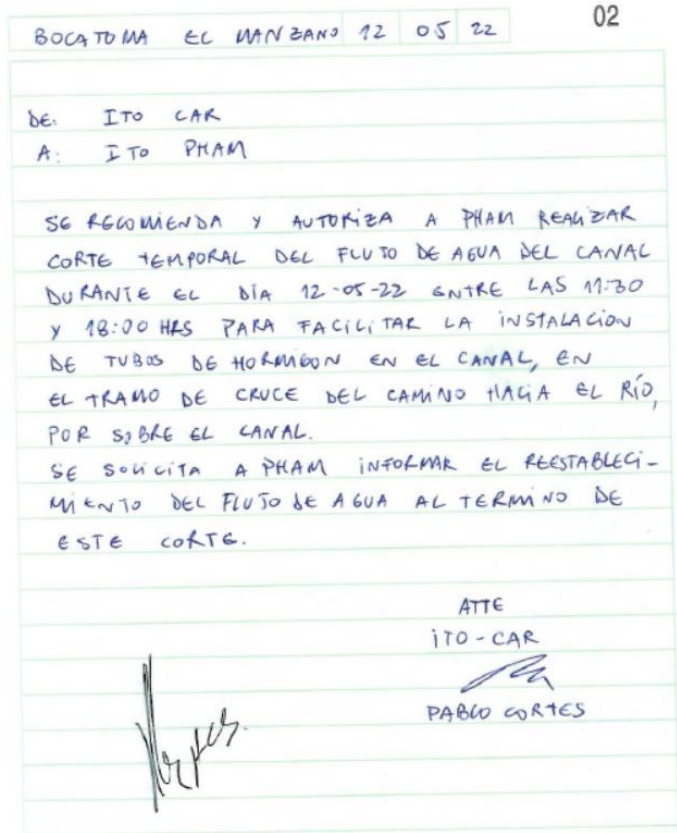 02
BOCATOMA EL MANZANO 12 05 22
DE: ITO CAR
A: ITO PHAM
SE RECOMIENDA Y AUTORIZA A PHAM REALIZAR
CORTE TEMPORAL DEL FLUJO DE AGUA DEL CANAL
DURANTE EL DÍA 12-05-22 ENTRE LAS 11:30
Y 18:00 HRS PARA FACILITAR LA INSTALACION
DE TUBOS DE HORMIGON EN EL CANAL, EN
EL TRAMO DE CRUCE DEL CAMINO HACIA EL RÍO,
POR SOBRE EL CANAL.
SE SOLICITA A PHAM INFORMAR EL REESTABLECI-
MIENTO DEL FLUJO DE AGUA AL TERMINO DE
ESTE CORTE.
ATTE
ITO-CAR
PABLO CORTES